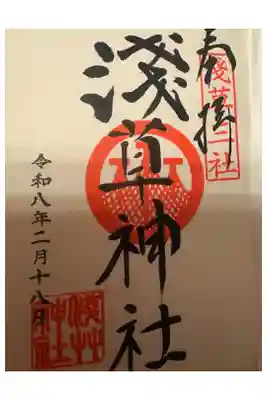 奉拝
淺草三社
淺草神社
令和八年二月十八日
淺草神社